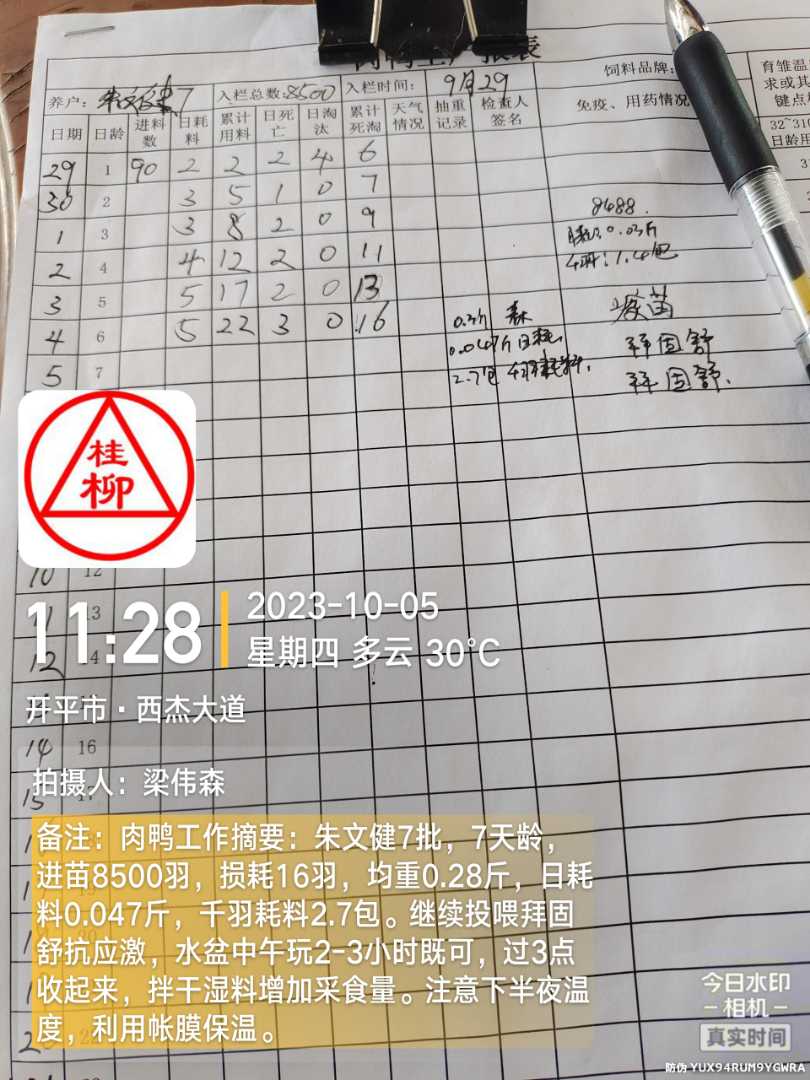 养户：朱文健7 入栏总数：8500 入栏时间：9月29 饲料品牌：
日期 日龄 进料数 日耗料 累计用料 日死亡 日淘汰 累计死淘 天气情况 抽重记录 检查人签名 免疫、用药情况
育雏温
求或其
键点
32~310
日龄用
29 1 90 2 2 2 4 6
30 2 3 5 1 0 7
1 3 3 8 2 0 9
8488.
2 4 4 12 2 0 11
日耗：0.03斤
千羽：1.4包
3 5 5 17 2 0 13
疫苗
4 6 5 22 3 0 16
森
拜固舒
5 7
0.047斤日耗
2.7包 千羽耗料.
拜固舒.
桂
柳
10 12
11 13
12 14
14 16
15
11:28
2023-10-05
星期四 多云 30℃
开平市·西杰大道
拍摄人：梁伟森
备注：肉鸭工作摘要：朱文健7批，7天龄，
进苗8500羽，损耗16羽，均重0.28斤，日耗
料0.047斤，千羽耗料2.7包。继续投喂拜固
舒抗应激，水盆中午玩2-3小时既可，过3点
收起来，拌干湿料增加采食量。注意下半夜温
度，利用帐膜保温。
今日水印
相机
真实时间
防伪 YUX94RUM9YGWRA